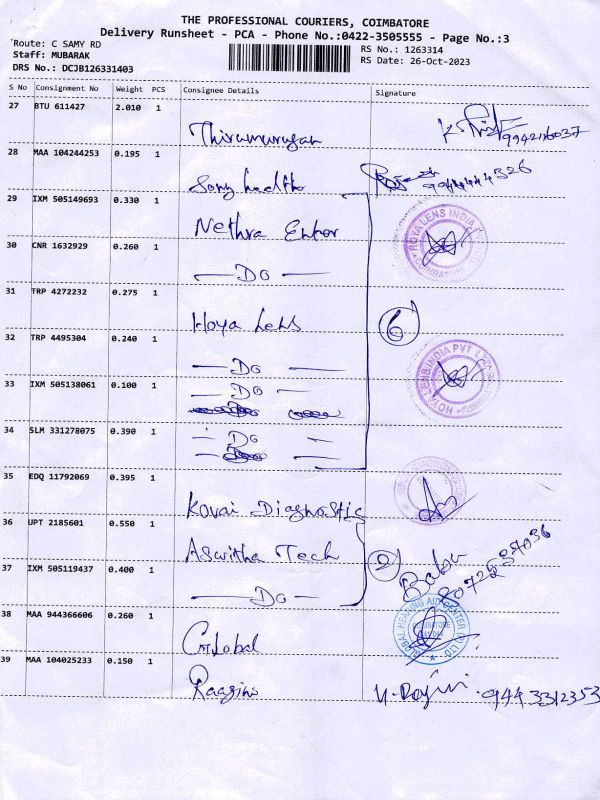 THE PROFESSIONAL COURIERS, COIMBATORE
Delivery Runsheet - PCA - Phone No.:0422-3505555 - Page No.:3
Route: C SAMY RD
Staff: MUBARAK
DRS No.: DCJB126331403
RS No.: 1263314
RS Date: 26-Oct-2023
S No Consignment No Weight PCS Consignee Details Signature
27 BTU 611427 2.010 1 Thirumurugan
28 MAA 104244253 0.195 1 Sony health
29 IXM 505149693 0.330 1 Nethra
ROYA LENS INDIA
30 CNR 1632929 0.260 1 — Do —
31 TRP 4272232 0.275 1 Hoya Lens
6
32 TRP 4495304 0.240 1 — Do —
HOYA LENS INDIA PVT
33 IXM 505138061 0.100 1 — Do —
34 SLM 331278075 0.390 1 — Do —
35 EDQ 11792069 0.395 1 Kovai Diagnostic
36 UPT 2185601 0.550 1 Aswitha Tech
2 Babu
37 IXM 505119437 0.400 1 — Do —
38 MAA 944366606 0.260 1 Global
GLOBAL HEARING AID CENTER
39 MAA 104025233 0.150 1
9443312353